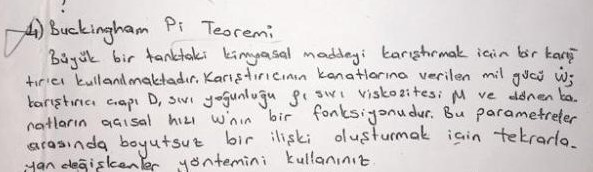 4) Buckingham Pi Teoremi
Büyük bir tanktaki kimyasal maddeyi karıştırmak için bir karış
tırıcı kullanılmaktadır. Karıştırıcının kanatlarına verilen mil gücü Ẇ;
karıştırıcı çapı D, sıvı yoğunluğu ρ; sıvı viskozitesi μ ve dönen ka-
natların açısal hızı w'nın bir fonksiyonudur. Bu parametreler
arasında boyutsuz bir ilişki oluşturmak için tekrarla-
yan değişkenler yöntemini kullanınız.